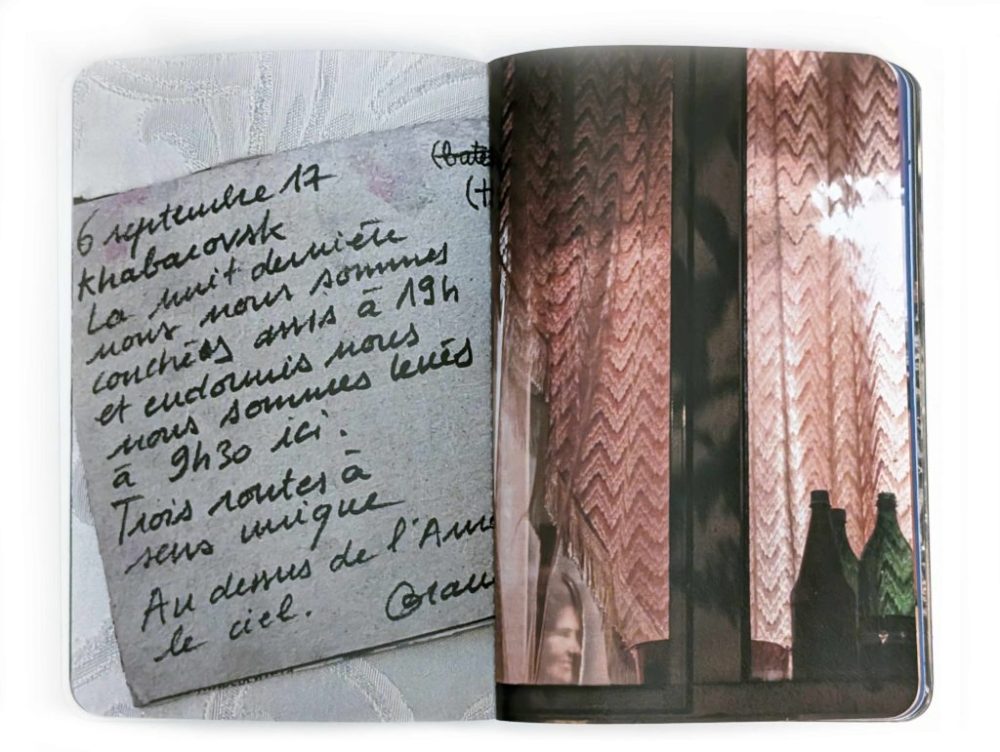 (bate
(t
6 septembre 17
Khabarovsk
La nuit dernière
nous nous sommes
couchés assis à 19h
et endormis nous
nous sommes levés
à 9h30 ici.
Trois routes à
sens unique
Au dessus de l'Amo
le ciel.